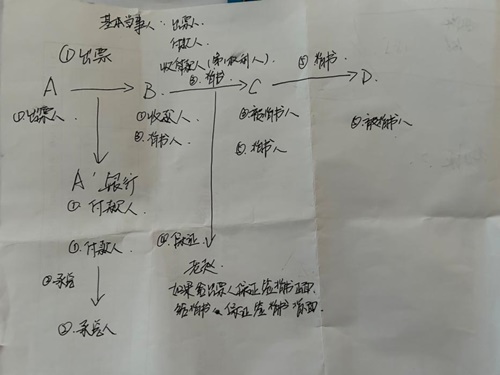 基本当事人：出票人.
付款人.
收款人（第一权利人）
①出票
②背书
③背书
A B. C D.
①出票人
①收款人
②背书人
②被背书人
③背书人
③被背书人
A' 银行
①付款人.
①付款人.
④保证.
老赵.
如果给出票人保证签背书正面.
给背书人保证签背书背面.
②承兑
②承兑人